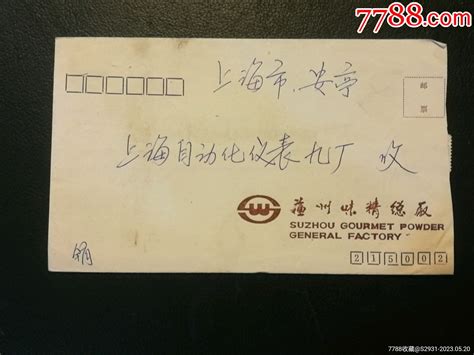 7788.com
上海市、安亭
邮
票
上海自动化仪表九厂 收
蘇州味精總廠
SUZHOU GOURMET POWDER
GENERAL FACTORY
215002
7788收藏@S2931-2023.05.20